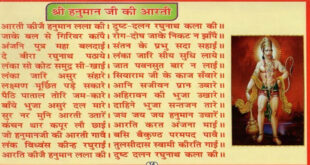 श्री हनुमान जी की आरती
आरती कीजै हनुमान लला की। दुष्ट-दलन रघुनाथ कला की॥
जाके बल से गिरिवर काँपै। रोग-दोष जाके निकट न झाँपै॥
अंजनि पुत्र महा बलदाई। संतन के प्रभु सदा सहाई॥
दे बीरा रघुनाथ पठाये। लंका जारि सीय सुधि लाये॥
लंका सो कोट समुद्र सी खाई। जात पवनसुत बार न लाई॥
लंका जारि असुर संहारे। सियाराम जी के काज सँवारे॥
लक्ष्मण मूर्छित पड़े सकारे। आनि सजीवन प्रान उबारे॥
पैठि पाताल तोरि जम-कारे। अहिरावन की भुजा उखारे॥
बाएँ भुजा असुर दल मारे। दाहिने भुजा सन्तजन तारे॥
सुर नर मुनि आरती उतारें। जय जय जय हनुमान उचारें॥
कंचन थार कपूर लौ छाई। आरति करत अंजना माई॥
जो हनुमान जी की आरती गावै। बसि बैकुण्ठ परमपद पावै॥
लंक विध्वंस कीन्ह रघुराई। तुलसीदास स्वामी कीरति गाई॥
आरति कीजै हनुमान लला की। दुष्ट दलन रघुनाथ कला की॥